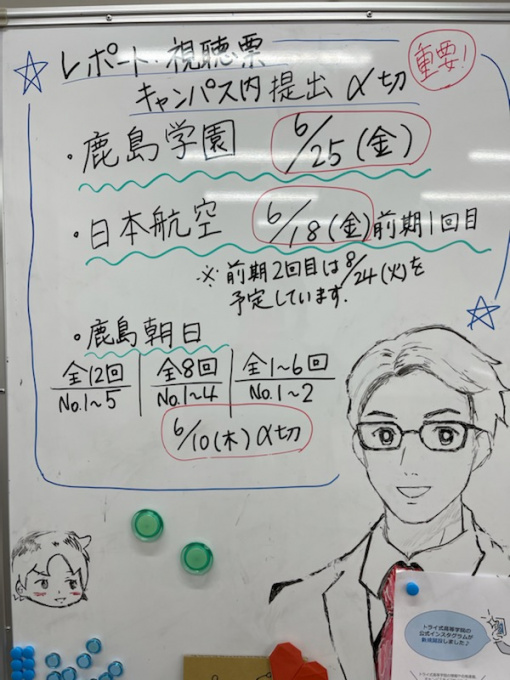 レポート・視聴票
重要!
キャンパス内提出〆切
・鹿島学園 6/25(金)
・日本航空 6/18(金)前期1回目
※前期2回目は8/24(火)を
予定しています.
・鹿島朝日
全12回 全8回 全1~6回
No.1~5 No.1~4 No.1~2
6/10(木)〆切
トライ式高等学院の
公式インスタグラムが
新規開設しました♪